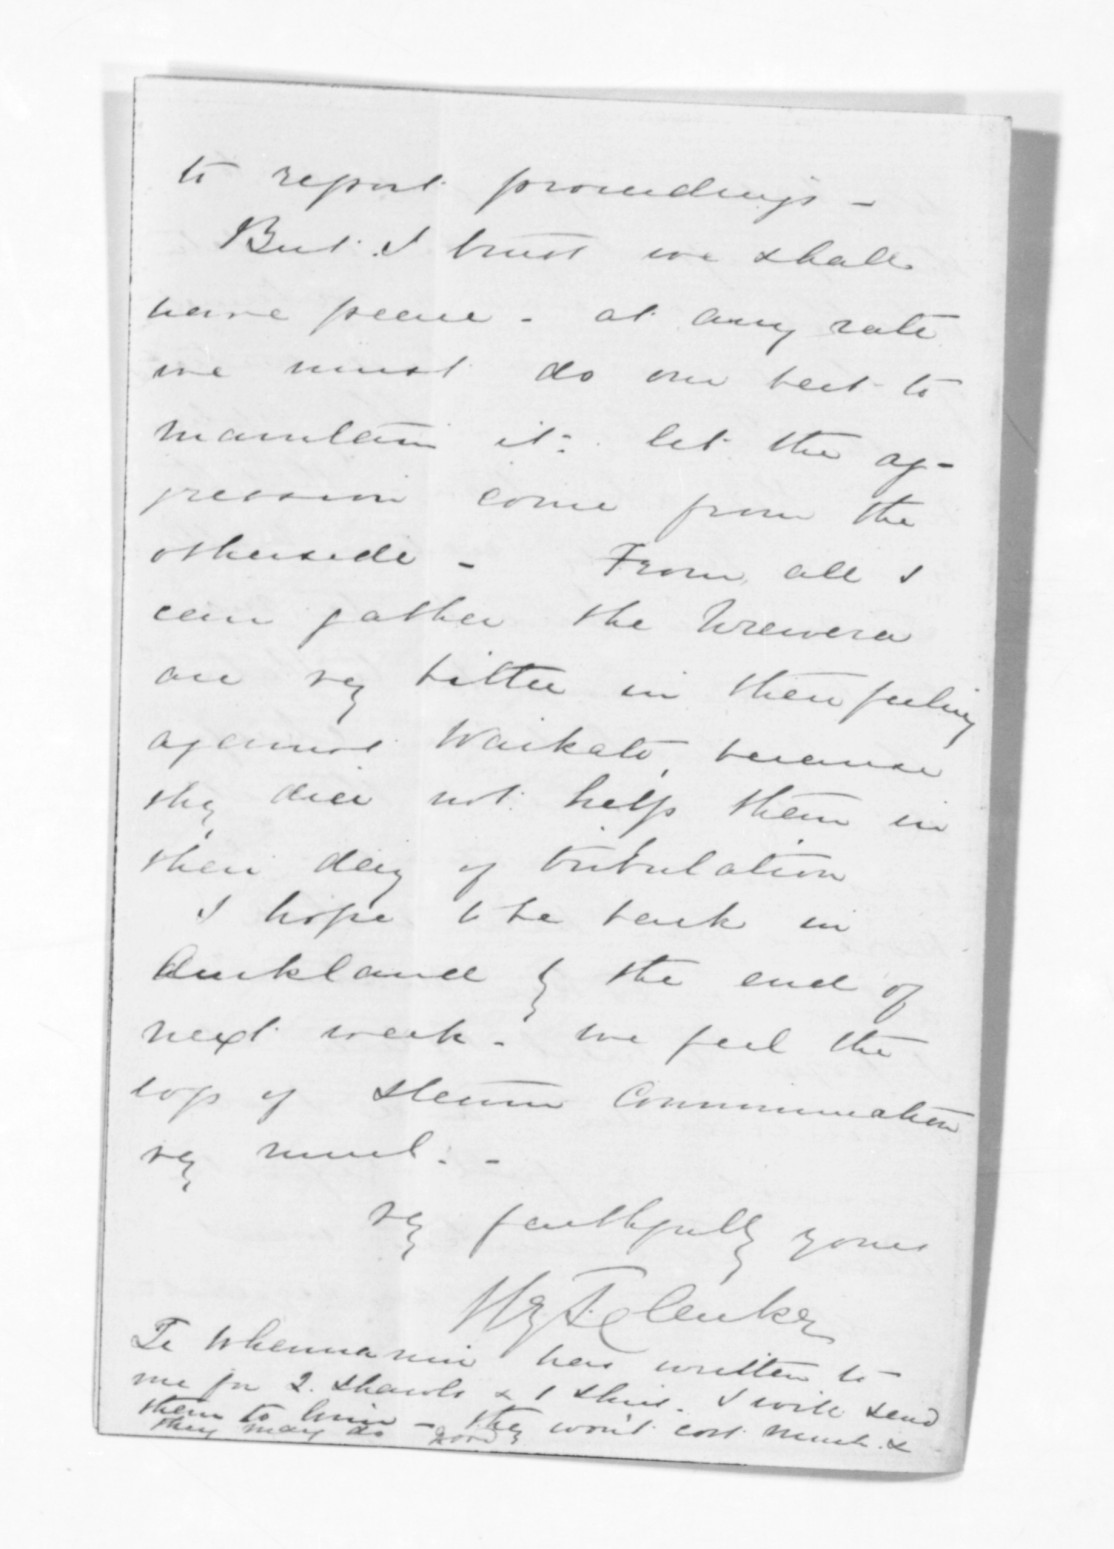 to report proceedings -
But I trust we shall
have peace - at any rate
we must do our best to
maintain it: let the ag-
gression come from the
otherside - From all I
can gather the Urewera
are vy bitter in their feeling
against Waikato, because
they did not help them in
their day of tribulation
I hope to be back in
Auckland by the end of
next week - we feel the
loss of steam communication
vy much. -
vy faithfully yours
Hy T. Clarke
Te Whenuanui has written to
me for 2. shawls & 1 shirt. I will send
them to him - they won't cost much &
they may do good